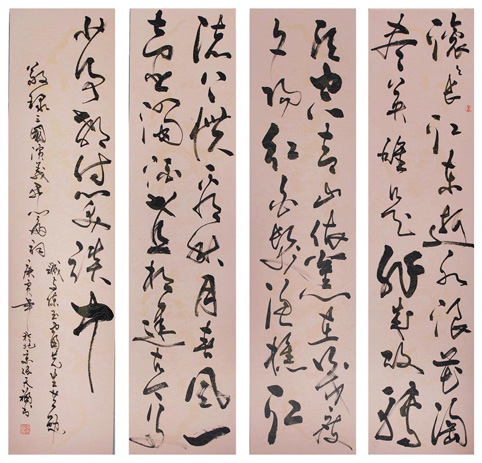 滚滚长江东逝水浪花淘
尽英雄是非成败转
头空青山依旧在几度
夕阳红白发渔樵江
渚上惯看秋月春风一
壶浊酒喜相逢古今多
少事都付笑谈中
敬录三国演义开篇词
先生共勉
庚寅年 于北京